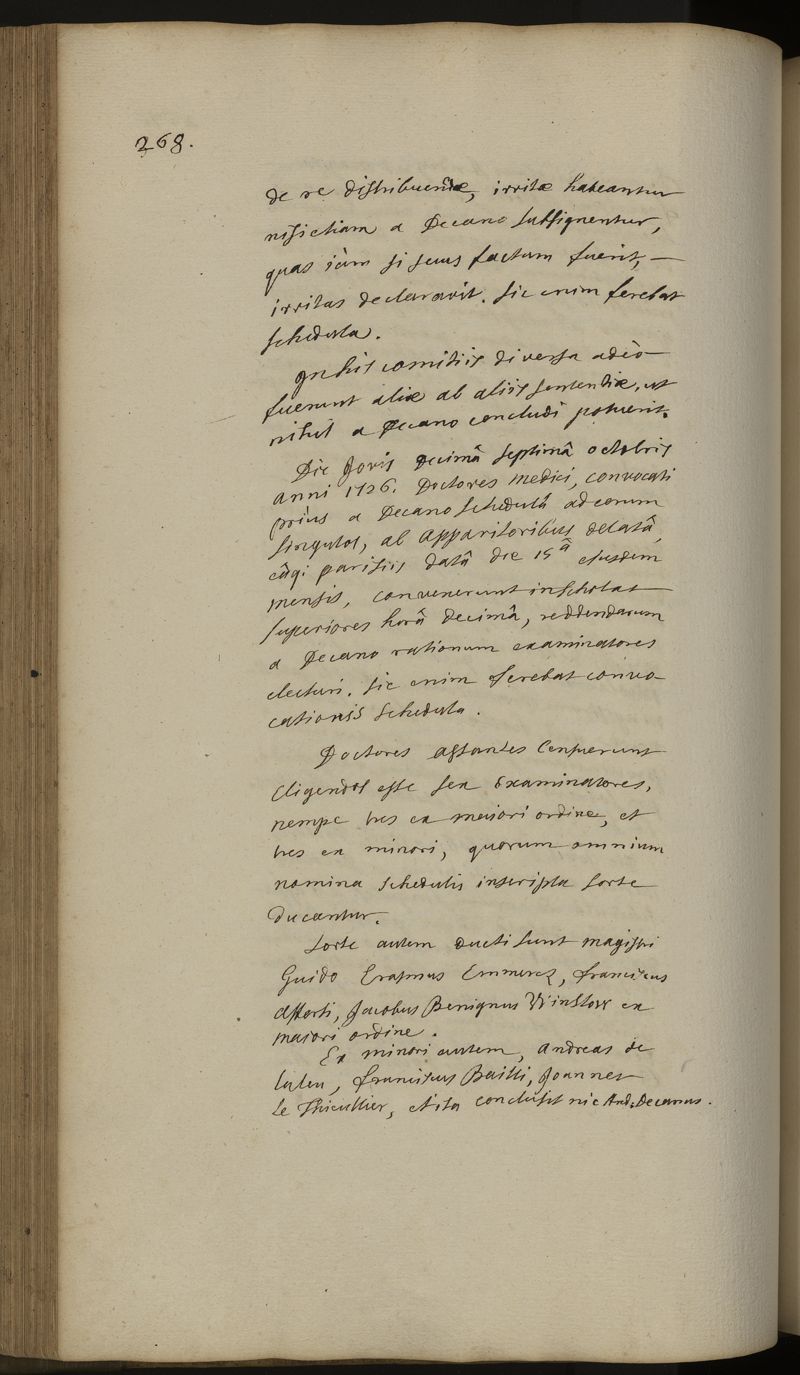 268.
de re distribuendæ, irritæ habeantur
nisi etiam a Decano subsignentur,
quas iàm si secus factum fuerit, —
irritas declaravit. sic enim ferebat
schedula.
In his comitiis diversæ adeò
fuerunt aliæ ab aliis sententiæ, ut
nihil a Decano concludi potuerit.
Die Jovis decimâ septimâ octobris
anni 1726. Doctores medici, convocati
priùs a Decano schedulâ ad eorum
singulos, ab Apparitoribus delatâ,
eâq; parisiis datâ die 15â ejusdem
mensis, convenerunt in scholas
superiores horâ decimâ, reddendarum
a Decano rationum examinatores
electuri. sic enim ferebat convo-
cationis schedula.
Doctores astantes Censuerunt
Eligendos esse sex Examinatores,
nempe tres ex maiori ordine, et
tres ex minori, quorum omnium
nomina schedulis inscripta sorte
ducantur.
Sorte autem ducti sunt magistri
Guido Erasmus Emmerez, franciscus
afforti, Jacobus Benignus Winslow ex
maiori ordine.
Ex minori autem, Andreas de
franciscus Bailli, Joannes
Le Thieullier, et ita conclusit nic And. Decanus.